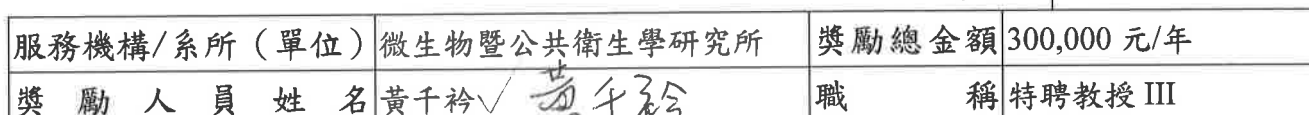 服務機構/系所（單位） 微生物暨公共衛生學研究所 獎勵總金額 300,000 元/年
獎勵人員姓名 黃千衿✓ 黃千衿 職稱 特聘教授 III